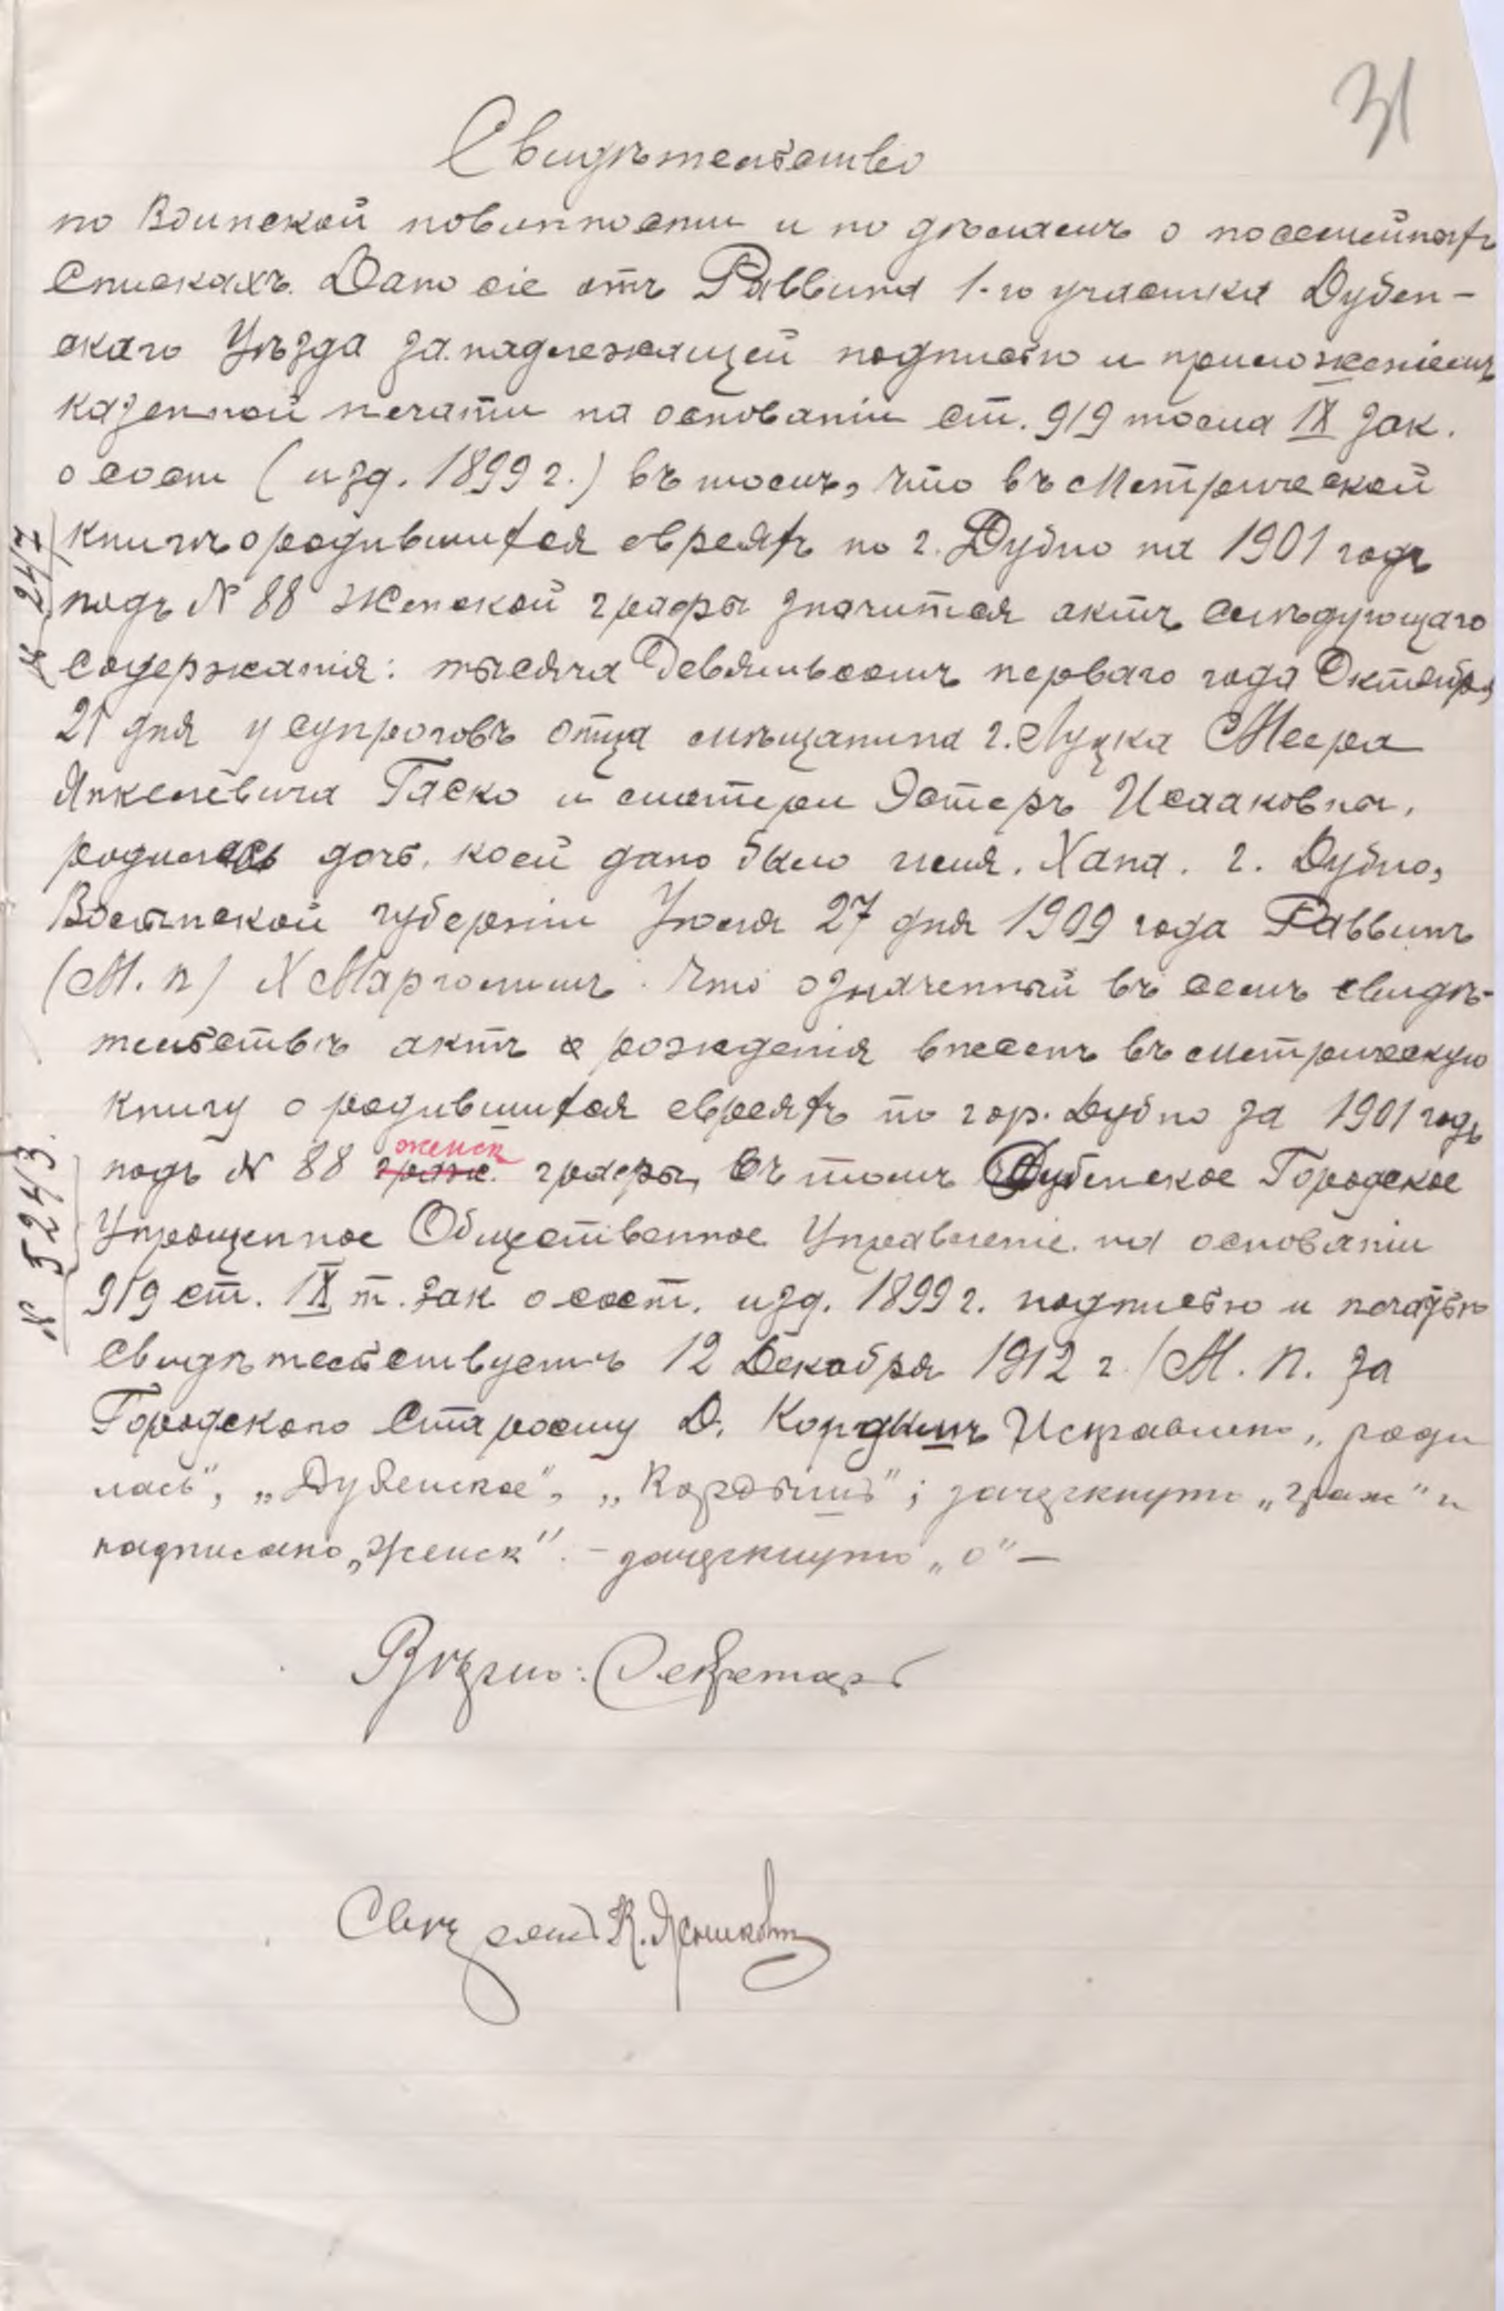 31
Свидѣтельство
по Воинской повинности и по дѣламъ о посемейныхъ
Спискахъ. Дано сіе отъ Раввина 1-го участка Дубен-
скаго Уѣзда за надлежащей подписью и приложеніемъ
казенной печати на основаніи ст. 919 тома IX Зак.
о сост (изд. 1899 г.) въ томъ, что въ Метрической
книгѣ о родившихся евреяхъ по г. Дубно на 1901 годъ
подъ № 88 женской графы значится актъ слѣдующаго
содержанія: тысяча Девятьсотъ перваго года Октября
21 дня у супроговъ отца мѣщанина г. Луцка Меера
Янкелевича Гаско и матери Эстеръ Исааковны,
родилась дочь, коей дано было имя. Хана. г. Дубно,
Волынской губерніи Іюля 27 дня 1909 года Раввинъ
(М. п) Х Маргомишъ. Что означенный въ семъ свидѣ-
тельствѣ актъ о рожденія внесенъ въ метрическую
книгу о родившихся евреяхъ по гор. Дубно за 1901 годъ
женск
подъ № 88 граж. графы, въ томъ Дубенское Городское
Упрощенное Общественное Управленіе на основаніи
919 ст. IX т. Зак о сост. изд. 1899 г. подписью и печатью
свидѣтельствуетъ 12 Декабря 1912 г. (М. п. За
Городского Старосту Д. Кордышъ Исправлено „роди
лась", „Дубенское", „Кордышъ"; зачеркнуто „граж" и
надписано „женск". - зачеркнуто „о" —
Вѣрно: Секретарь
Свѣрялъ
№ 247
№ 5243.